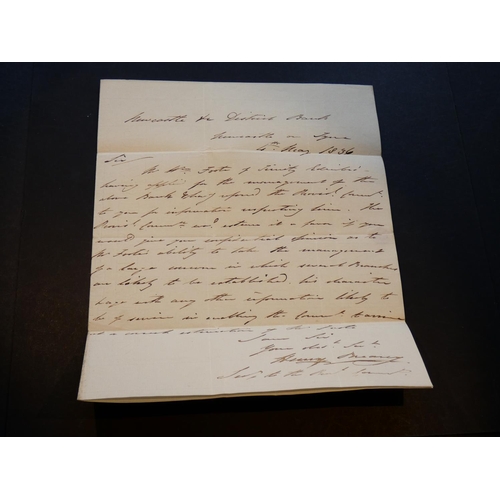 Newcastle & District Bank
Newcastle on Tyne
4th May 1836
Sir
Foster of
having applied for the management of the
above Bank & has referred the
to you for information respecting him. The
esteem it a favor if you
would give your confidential opinion as to
Mr Foster ability to take the management
of a large concern in which several Branches
are likely to be established his character
with any other information likely to
be of service in enabling the
at a correct estimation of
I am Sir
Your obt
Henry
to the